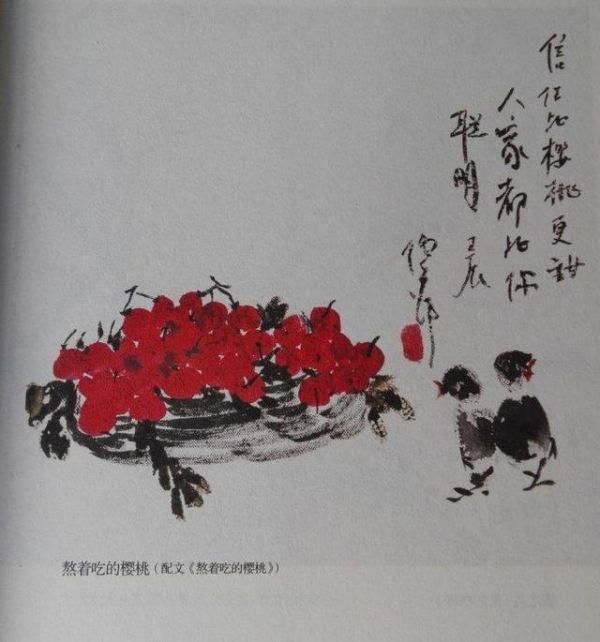 信任比樱桃更甜
人家都比你
聪明 壬辰
熬着吃的樱桃（配文《熬着吃的樱桃》）